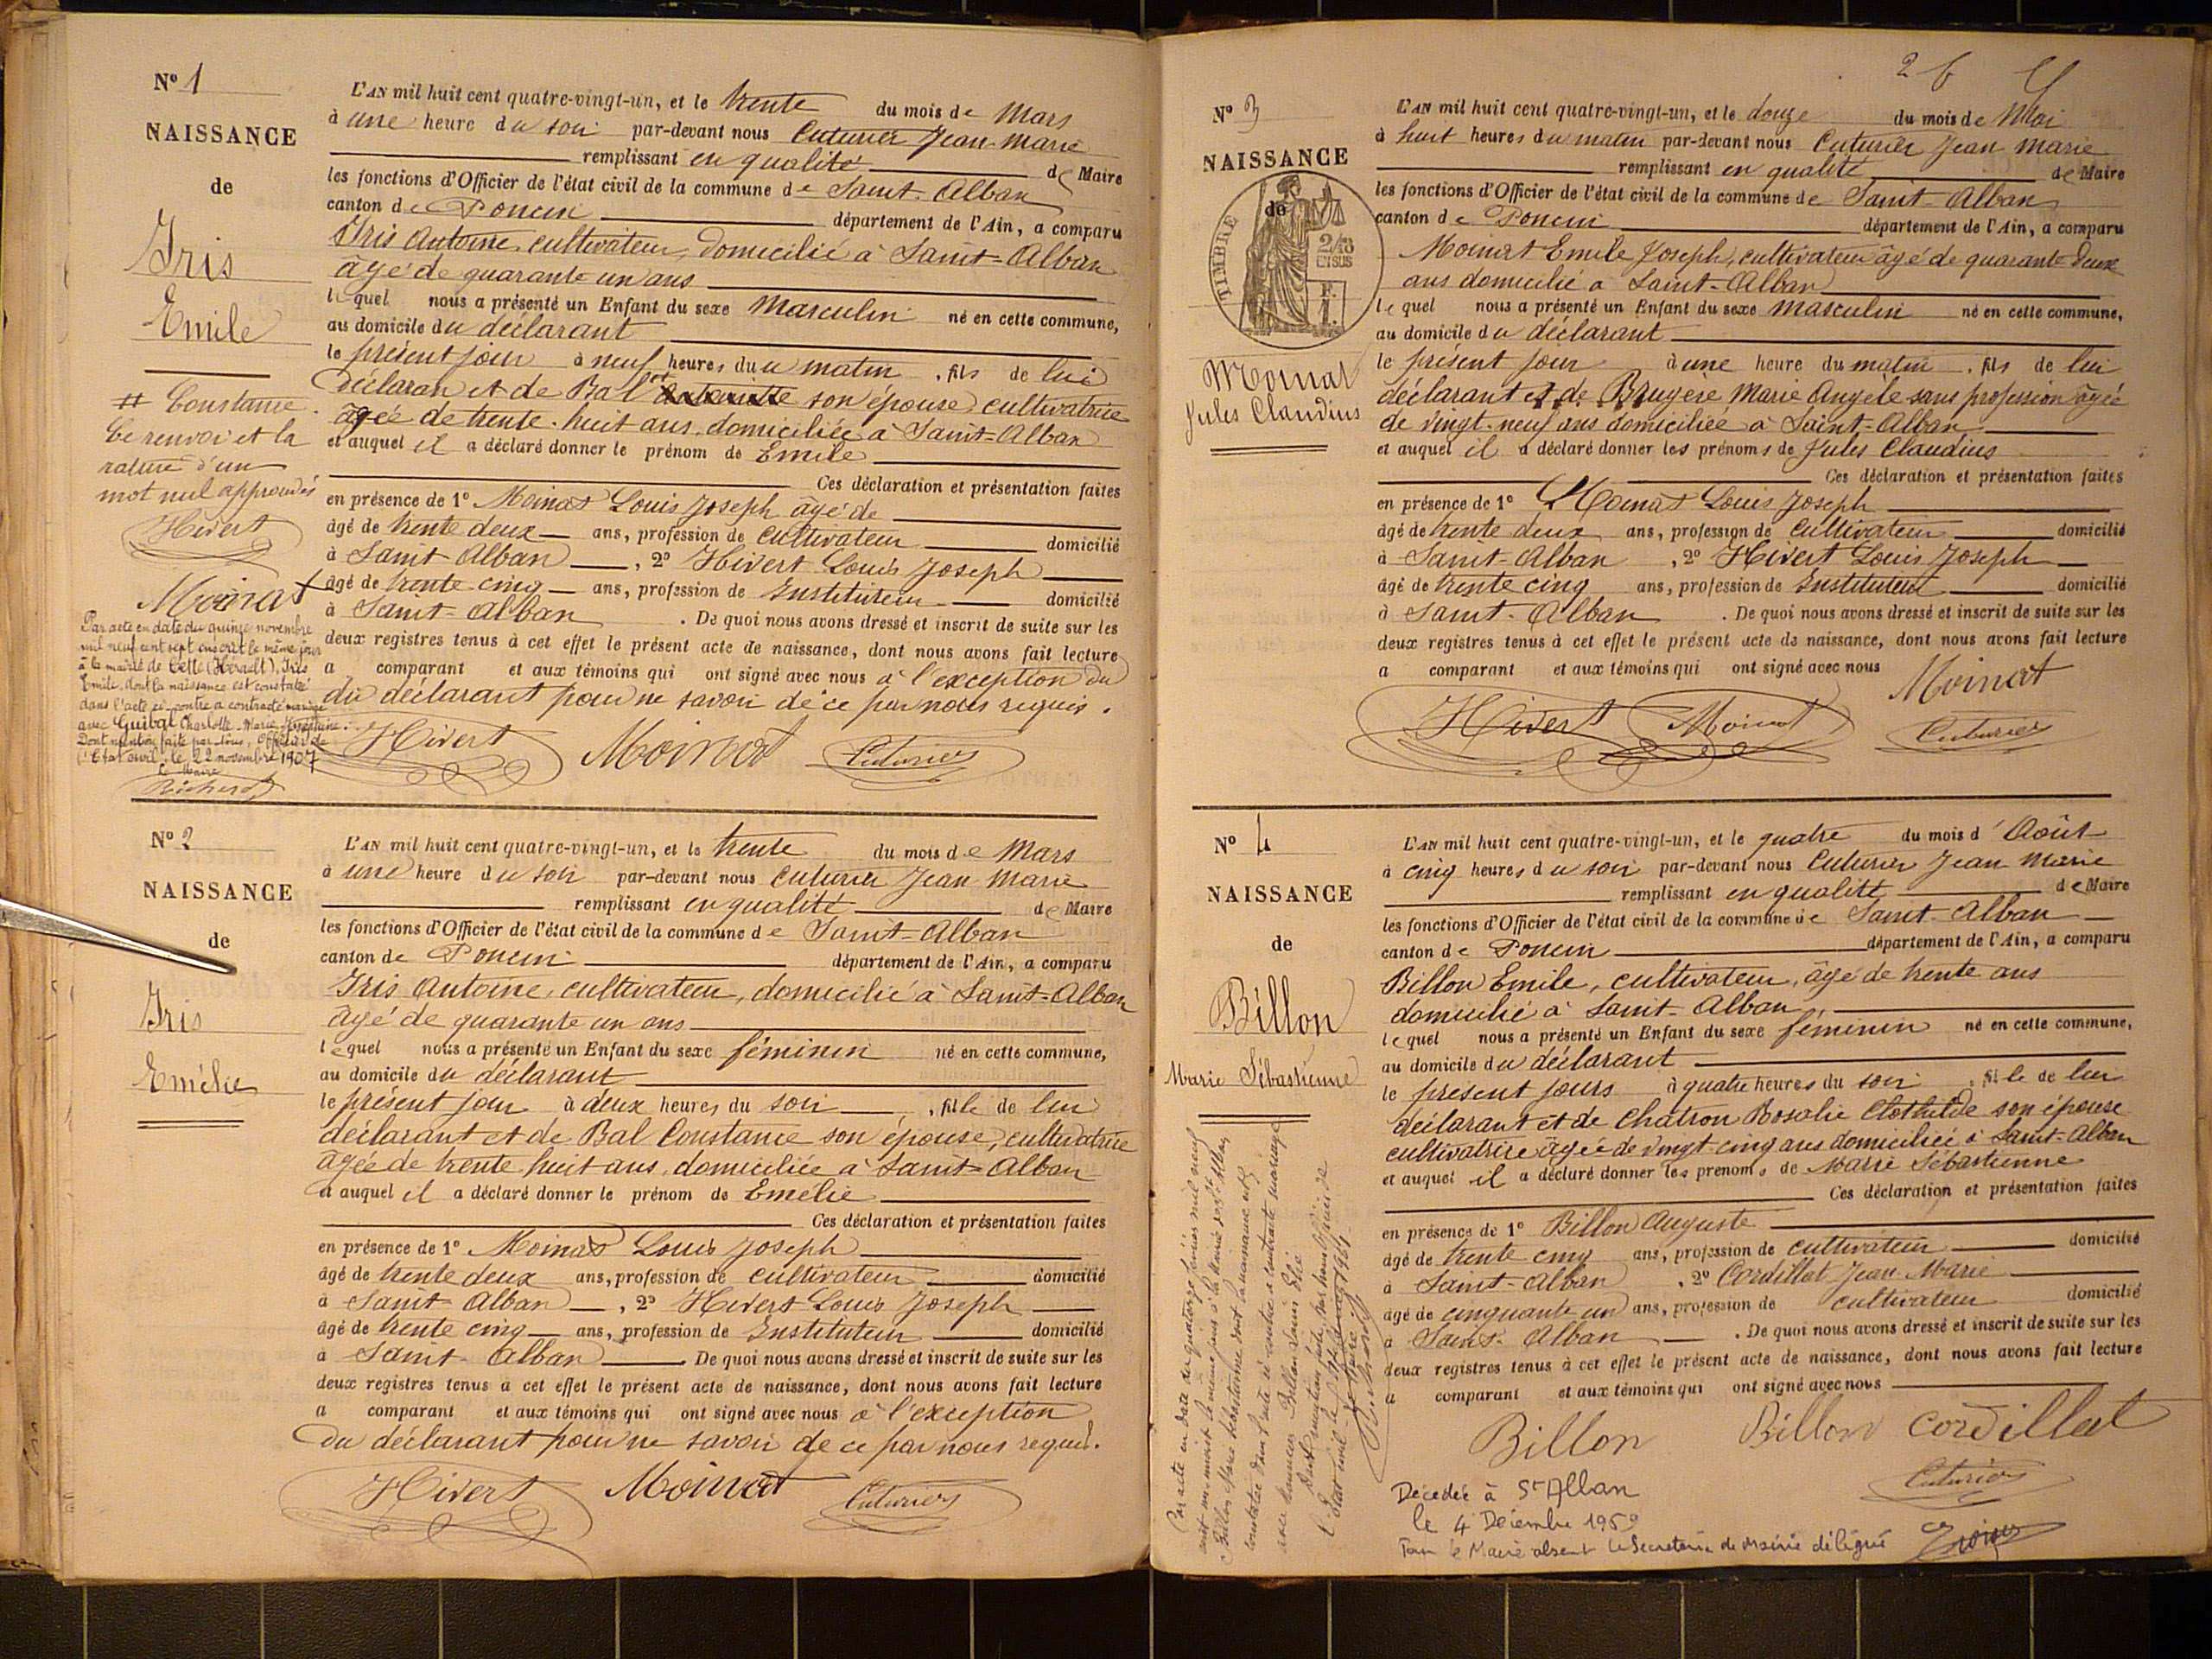 Nº 1
NAISSANCE
de
Iris
Emile
# Constance.
Le renvoi et la
rature d'un
mot nul approuvés
Hivert
Moinat
Par acte en date du quinze novembre
mil neuf cent sept inscrit le même jour
à la mairie de Cette (Hérault), Iris
Emile, dont la naissance est constatée
dans l'acte ci-contre a contracté mariage
avec Guibal Charlotte Marie
Dont mention faite par Nous, Officier de
l'Etat civil, le 22 novembre 1907
Le Maire
L'AN mil huit cent quatre-vingt-un, et le trente du mois de Mars
à une heure du soir par-devant nous Cuturier Jean-Marie
remplissant en qualité de Maire
les fonctions d'Officier de l'état civil de la commune de Saint-Alban
canton de Poncin département de l'Ain, a comparu
Iris Antoine, cultivateur, domicilié à Saint-Alban
âgé de quarante un ans
lequel nous a présenté un Enfant du sexe Masculin né en cette commune,
au domicile du déclarant
le présent jour à neuf heures du matin, fils de lui
déclaran et de Bal # son épouse, cultivatrice
âgée de trente-huit ans, domiciliée à Saint-Alban
et auquel il a déclaré donner le prénom de Emile
Ces déclaration et présentation faites
en présence de 1º Moinat Louis Joseph âgé de
âgé de trente deux ans, profession de cultivateur domicilié
à Saint Alban, 2º Hivert Louis Joseph
âgé de trente cinq ans, profession de Instituteur domicilié
à Saint-Alban. De quoi nous avons dressé et inscrit de suite sur les
deux registres tenus à cet effet le présent acte de naissance, dont nous avons fait lecture
a comparant et aux témoins qui ont signé avec nous à l'exception du
du déclarant pour ne savoir de ce par nous requis.
Hivert Moinat Cuturier
Nº 2
NAISSANCE
de
Iris
Emélie
L'AN mil huit cent quatre-vingt-un, et le trente du mois de Mars
à une heure du soir par-devant nous Cuturier Jean Marie
remplissant en qualité de Maire
les fonctions d'Officier de l'état civil de la commune de Saint-Alban
canton de Poncin département de l'Ain, a comparu
Iris Antoine, cultivateur, domicilié à Saint-Alban
âgé de quarante un ans
lequel nous a présenté un Enfant du sexe féminin né en cette commune,
au domicile du déclarant
le présent jour à deux heures du soir, fille de lui
déclarant et de Bal Constance son épouse, cultivatrice
âgée de trente huit ans, domiciliée à Saint-Alban
et auquel il a déclaré donner le prénom de Emélie
Ces déclaration et présentation faites
en présence de 1º Moinat Louis Joseph
âgé de trente deux ans, profession de cultivateur domicilié
à Saint Alban, 2º Hivert Louis Joseph
âgé de trente cinq ans, profession de Instituteur domicilié
à Saint-Alban. De quoi nous avons dressé et inscrit de suite sur les
deux registres tenus à cet effet le présent acte de naissance, dont nous avons fait lecture
a comparant et aux témoins qui ont signé avec nous à l'exception
du déclarant pour ne savoir de ce par nous requis.
Hivert Moinat Cuturier
2
Nº 3
NAISSANCE
de
TIMBRE
Moinat
Jules Claudius
L'AN mil huit cent quatre-vingt-un, et le douze du mois de Mai
à huit heures du matin par-devant nous Cuturier Jean Marie
remplissant en qualité de Maire
les fonctions d'Officier de l'état civil de la commune de Saint-Alban
canton de Poncin département de l'Ain, a comparu
Moinat Emile Joseph, cultivateur âgé de quarante deux
ans domicilié à Saint-Alban
lequel nous a présenté un Enfant du sexe masculin né en cette commune,
au domicile du déclarant
le présent jour à une heure du matin, fils de lui
déclarant et de Bruyère Marie Angèle sans profession âgée
de vingt-neuf ans domiciliée à Saint-Alban
et auquel il a déclaré donner les prénoms de Jules Claudius
Ces déclaration et présentation faites
en présence de 1º Moinat Louis Joseph
âgé de trente deux ans, profession de cultivateur domicilié
à Saint-Alban, 2º Hivert Louis Joseph
âgé de trente cinq ans, profession de Instituteur domicilié
à Saint-Alban. De quoi nous avons dressé et inscrit de suite sur les
deux registres tenus à cet effet le présent acte de naissance, dont nous avons fait lecture
a comparant et aux témoins qui ont signé avec nous
Moinat
Hivert Moinat Cuturier
Nº 4
NAISSANCE
de
Billon
Marie Sébastienne
L'AN mil huit cent quatre-vingt-un, et le quatre du mois d'Août
à cinq heures du soir par-devant nous Cuturier Jean Marie
remplissant en qualité de Maire
les fonctions d'Officier de l'état civil de la commune de Saint-Alban
canton de Poncin département de l'Ain, a comparu
Billon Emile, cultivateur, âgé de trente ans
domicilié à Saint-Alban
lequel nous a présenté un Enfant du sexe féminin né en cette commune,
au domicile du déclarant
le présent jours à quatre heures du soir, fille de lui
déclarant et de Chatron Rosalie Clothilde son épouse
cultivatrice âgée de vingt-cinq ans domiciliée à Saint-Alban
et auquel il a déclaré donner les prénoms de Marie Sébastienne
Ces déclaration et présentation faites
en présence de 1º Billon Auguste
âgé de trente cinq ans, profession de cultivateur domicilié
à Saint-Alban, 2º Cordillat Jean-Marie
âgé de cinquante un ans, profession de cultivateur domicilié
à Saint-Alban. De quoi nous avons dressé et inscrit de suite sur les
deux registres tenus à cet effet le présent acte de naissance, dont nous avons fait lecture
a comparant et aux témoins qui ont signé avec nous
Billon Billon Cordillat
Cuturier
Décédée à St Alban
le 4 Décembre 1959
Pour le Maire absent le Secrétaire de Mairie délégué